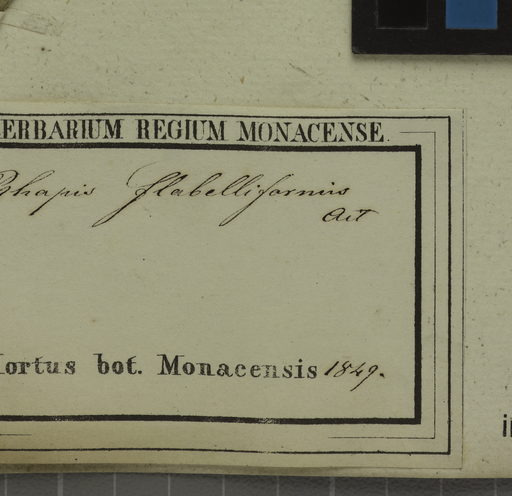 ERBARIUM REGIUM MONACENSE.
Rhapis flabelliformis
Ait
Hortus bot. Monacensis 1849.